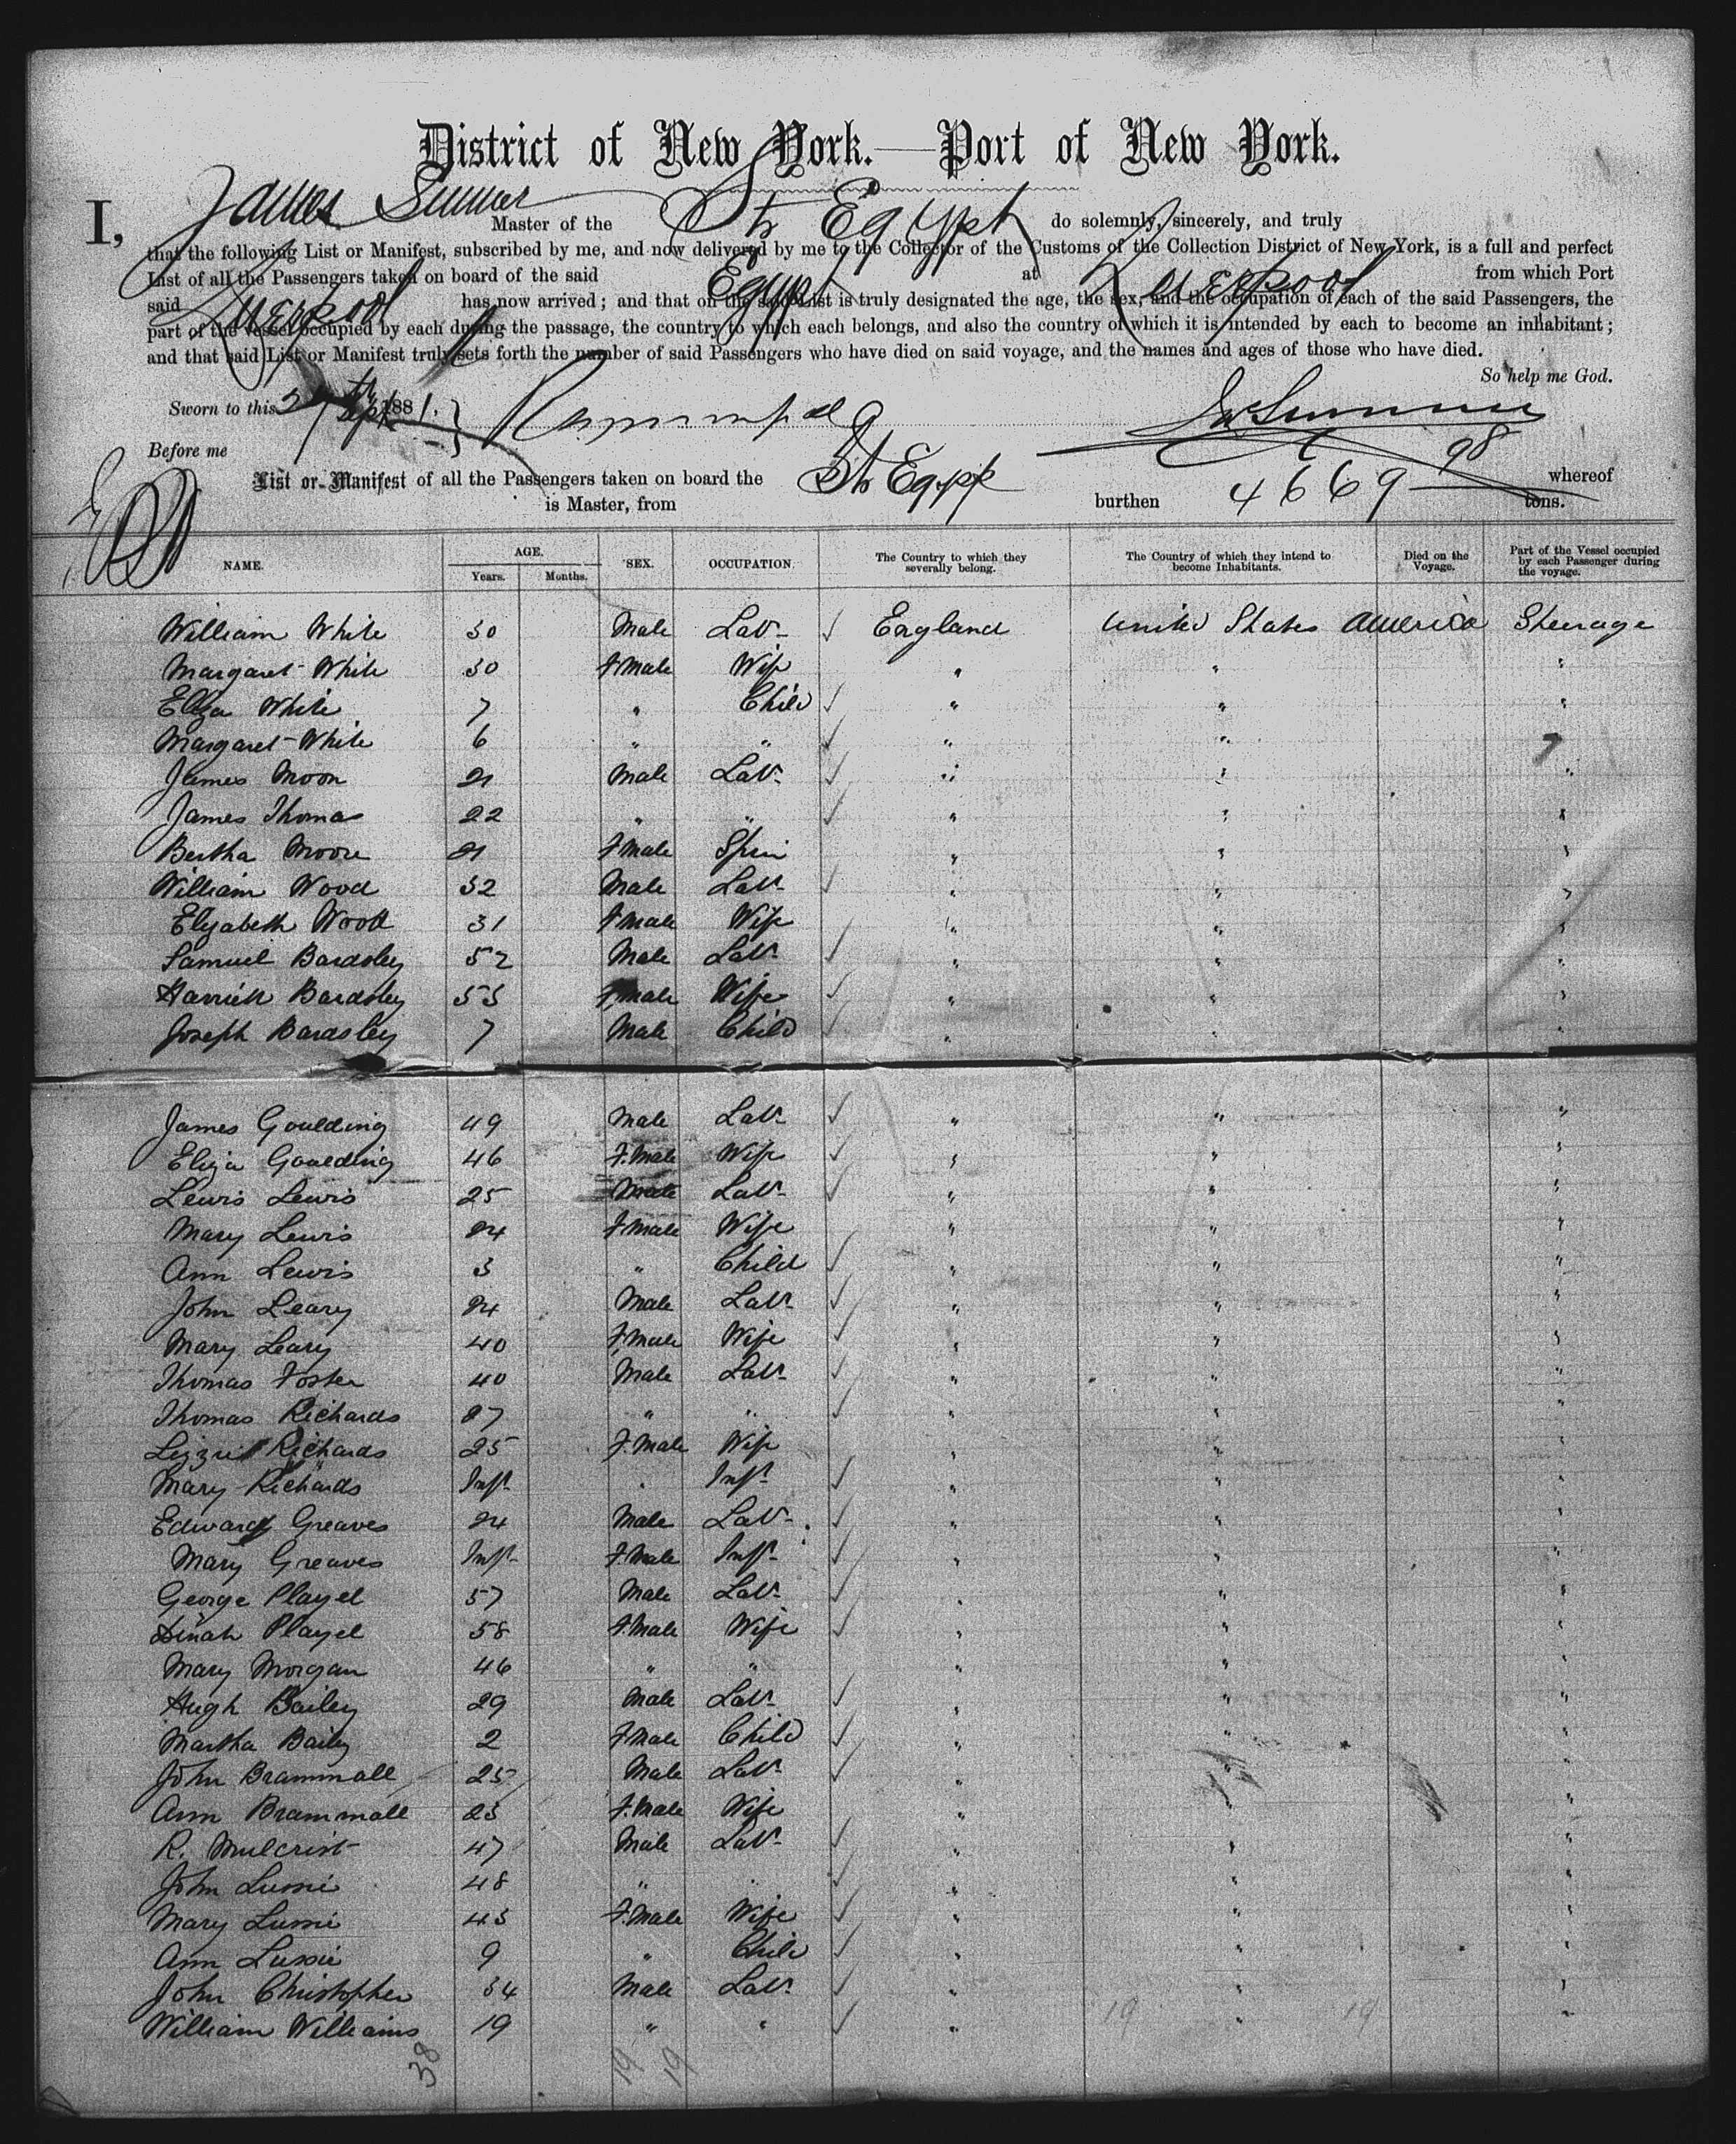 District of New York.—Port of New York.
I, James Sumner Master of the Str Egypt do solemnly, sincerely, and truly
that the following List or Manifest, subscribed by me, and now delivered by me to the Collector of the Customs of the Collection District of New York, is a full and perfect
List of all the Passengers taken on board of the said Egypt at Liverpool from which Port
said Liverpool has now arrived; and that on the said List is truly designated the age, the sex, and the occupation of each of the said Passengers, the
part of the vessel occupied by each during the passage, the country to which each belongs, and also the country of which it is intended by each to become an inhabitant;
and that said List or Manifest truly sets forth the number of said Passengers who have died on said voyage, and the names and ages of those who have died.
So help me God.
Sworn to this 27th Sept 1881. Jas Sumner
Before me
List or Manifest of all the Passengers taken on board the Str Egypt whereof
is Master, from burthen 4669 98 tons.
NAME. AGE. Years. Months. SEX. OCCUPATION. The Country to which they severally belong. The Country of which they intend to become Inhabitants. Died on the Voyage. Part of the Vessel occupied by each Passenger during the voyage.
William White 30 Male Labr ✓ England United States America Steerage
Margaret White 30 F.Male Wife " " "
Eliza White 7 " Child ✓ " " "
Margaret White 6 " " ✓ " " "
James Moon 21 Male Labr ✓ " " "
James Thomas 22 " " ✓ " " "
Bertha Moore 21 F.Male Spin " " "
William Wood 32 Male Labr ✓ " " "
Elizabeth Wood 31 F.Male Wife ✓ " " "
Samuel Bardsley 52 Male Labr ✓ " " "
Harriett Bardsley 53 F.Male Wife ✓ " " "
Joseph Bardsley 7 Male Child ✓ " " "
James Goulding 49 Male Labr ✓ " " "
Eliza Goulding 46 F.Male Wife ✓ " " "
Lewis Lewis 25 Male Labr ✓ " " "
Mary Lewis 24 F.Male Wife " " "
Ann Lewis 3 " Child ✓ " " "
John Leary 24 Male Labr ✓ " " "
Mary Leary 40 F.Male Wife ✓ " " "
Thomas Foster 40 Male Labr ✓ " " "
Thomas Richards 27 " " ✓ " " "
Lizzie Richards 25 F.Male Wife " " "
Mary Richards Inft " Inft ✓ " " "
Edward Greaves 24 Male Labr ✓ " " "
Mary Greaves Inft F.Male Inft ✓ " " "
George Playel 57 Male Labr ✓ " " "
Dinah Playel 58 F.Male Wife ✓ " " "
Mary Morgan 46 " " " " "
Hugh Bailey 29 Male Labr ✓ " " "
Martha Bailey 2 F.Male Child ✓ " " "
John Brammall 25 Male Labr ✓ " " "
Ann Brammall 23 F.Male Wife " " "
R. Mulcrist 47 Male Labr ✓ " " "
John Lussie 48 " " ✓ " " "
Mary Lussie 43 F.Male Wife ✓ " " "
Ann Lussie 9 " Child ✓ " " "
John Christopher 34 Male Labr ✓ " " "
William Williams 19 " " ✓ " 19 " 19 "
38 19 19